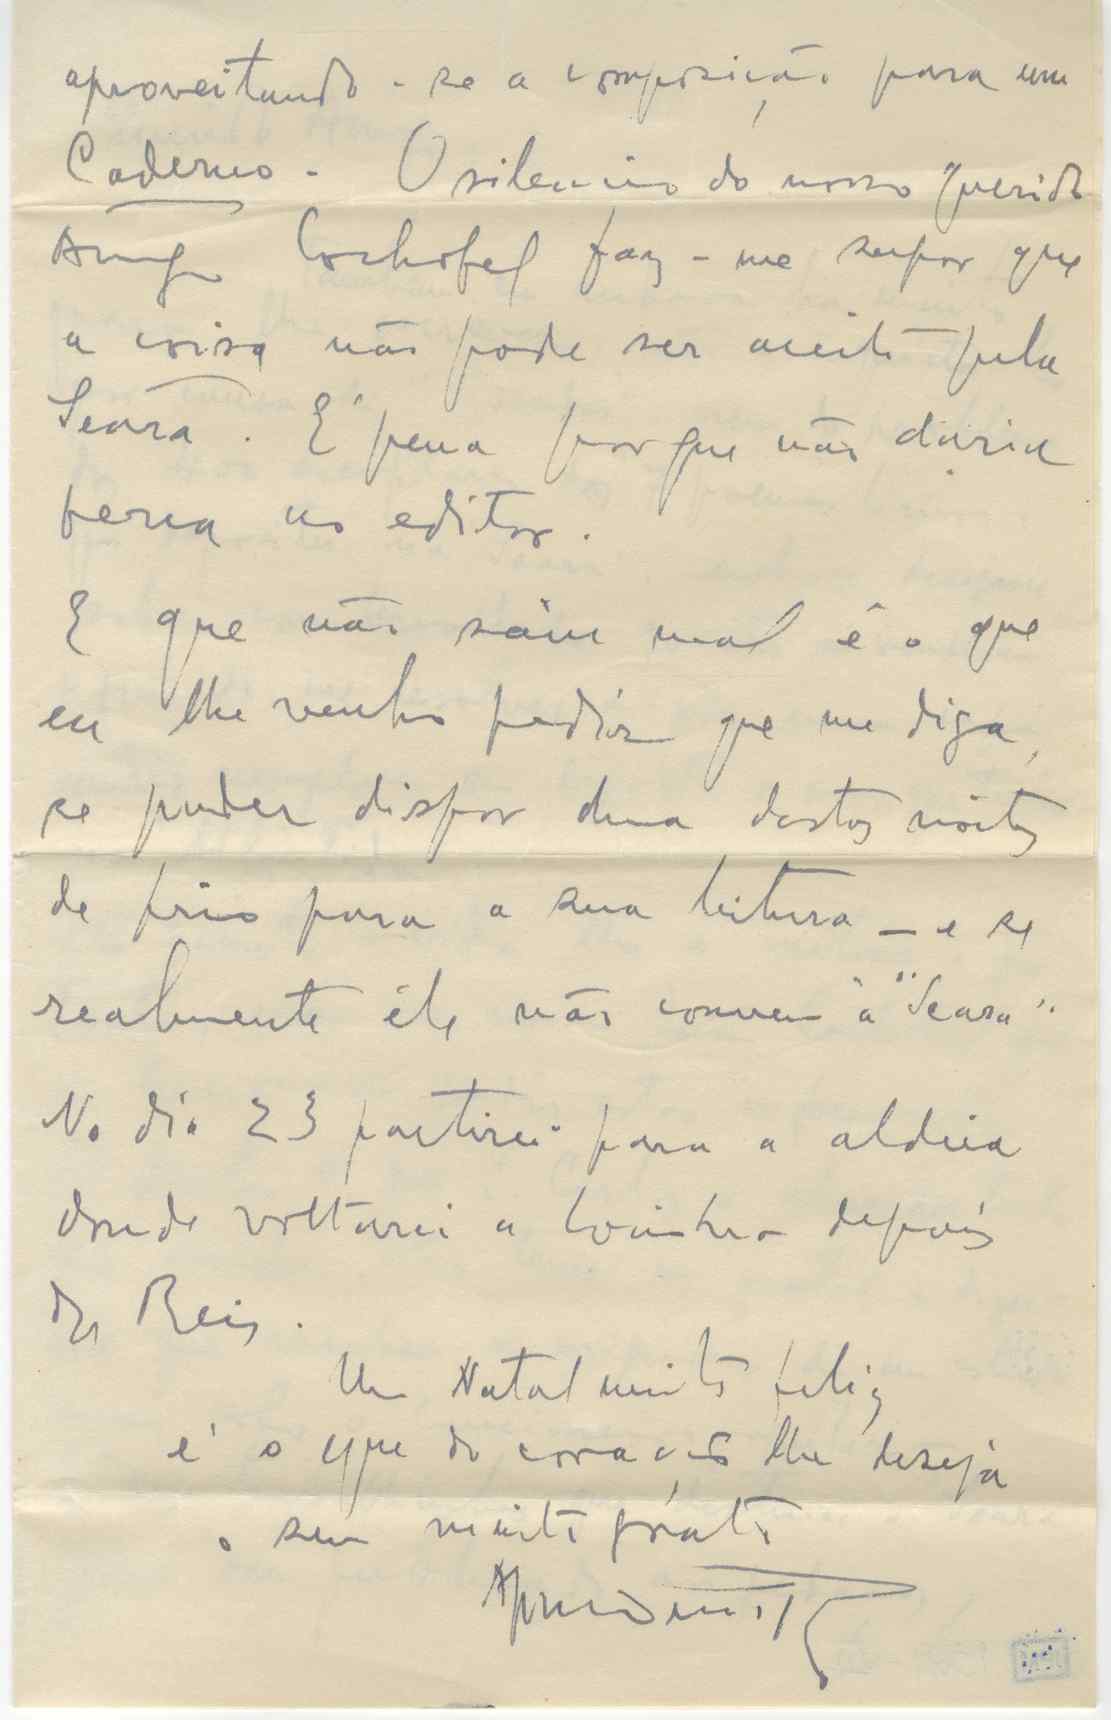 aproveitando-se a composição para um
Caderno. O silencio do nosso querido
Amigo Cochofel faz-me supor que
a coisa não pode ser aceite pela
Seara. É pena porque não daria
perca ao editor.
E que não sáiu mal é o que
eu lhe venho pedir que me diga,
se puder dispor duma destas noites
de frio para a sua leitura — e se
realmente êle não convem à "Seara".
No dia 23 partirei para a aldeia
donde voltarei a Coimbra depois
dos Reis.
Um Natal muito feliz
é o que do coração lhe deseja
o seu muito grato